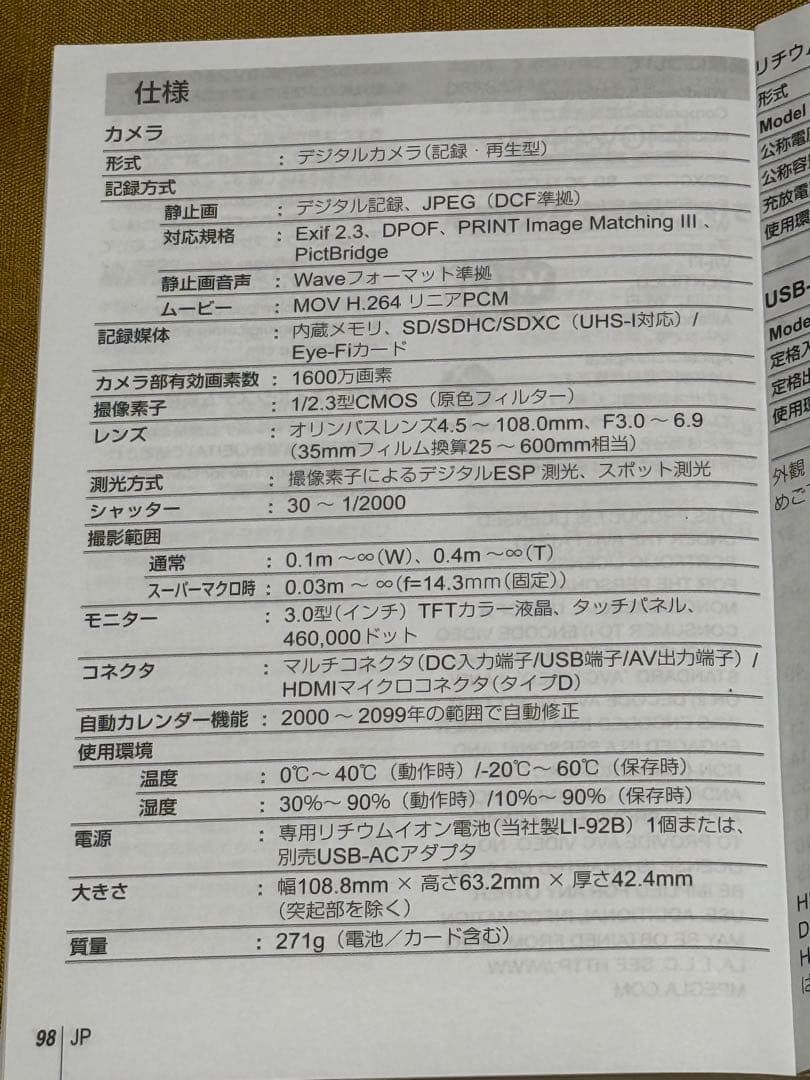 仕様
カメラ
形式 : デジタルカメラ(記録・再生型)
記録方式
静止画 : デジタル記録、JPEG(DCF準拠)
対応規格 : Exif 2.3、DPOF、PRINT Image Matching III 、
PictBridge
静止画音声 : Waveフォーマット準拠
ムービー : MOV H.264 リニアPCM
記録媒体 : 内蔵メモリ、SD/SDHC/SDXC(UHS-I対応)/
Eye-Fiカード
カメラ部有効画素数 : 1600万画素
撮像素子 : 1/2.3型CMOS(原色フィルター)
レンズ : オリンパスレンズ4.5 ~ 108.0mm、F3.0 ~ 6.9
(35mmフィルム換算25 ~ 600mm相当)
測光方式 : 撮像素子によるデジタルESP 測光、スポット測光
シャッター : 30 ~ 1/2000
撮影範囲
通常 : 0.1m ~∞(W)、0.4m ~∞(T)
スーパーマクロ時 : 0.03m ~ ∞(f=14.3mm(固定))
モニター : 3.0型(インチ)TFTカラー液晶、タッチパネル、
460,000ドット
コネクタ : マルチコネクタ(DC入力端子/USB端子/AV出力端子)/
HDMIマイクロコネクタ(タイプD)
自動カレンダー機能 : 2000 ~ 2099年の範囲で自動修正
使用環境
温度 : 0℃~ 40℃(動作時)/-20℃~ 60℃(保存時)
湿度 : 30%~ 90%(動作時)/10%~ 90%(保存時)
電源 : 専用リチウムイオン電池(当社製LI-92B)1個または、
別売USB-ACアダプタ
大きさ : 幅108.8mm × 高さ63.2mm × 厚さ42.4mm
(突起部を除く)
質量 : 271g(電池/カード含む)
98 JP
リチウ
形式
Model
公称電
公称容
充放電
使用環
USB-
Mode
定格入
定格出
使用環
外観
めご